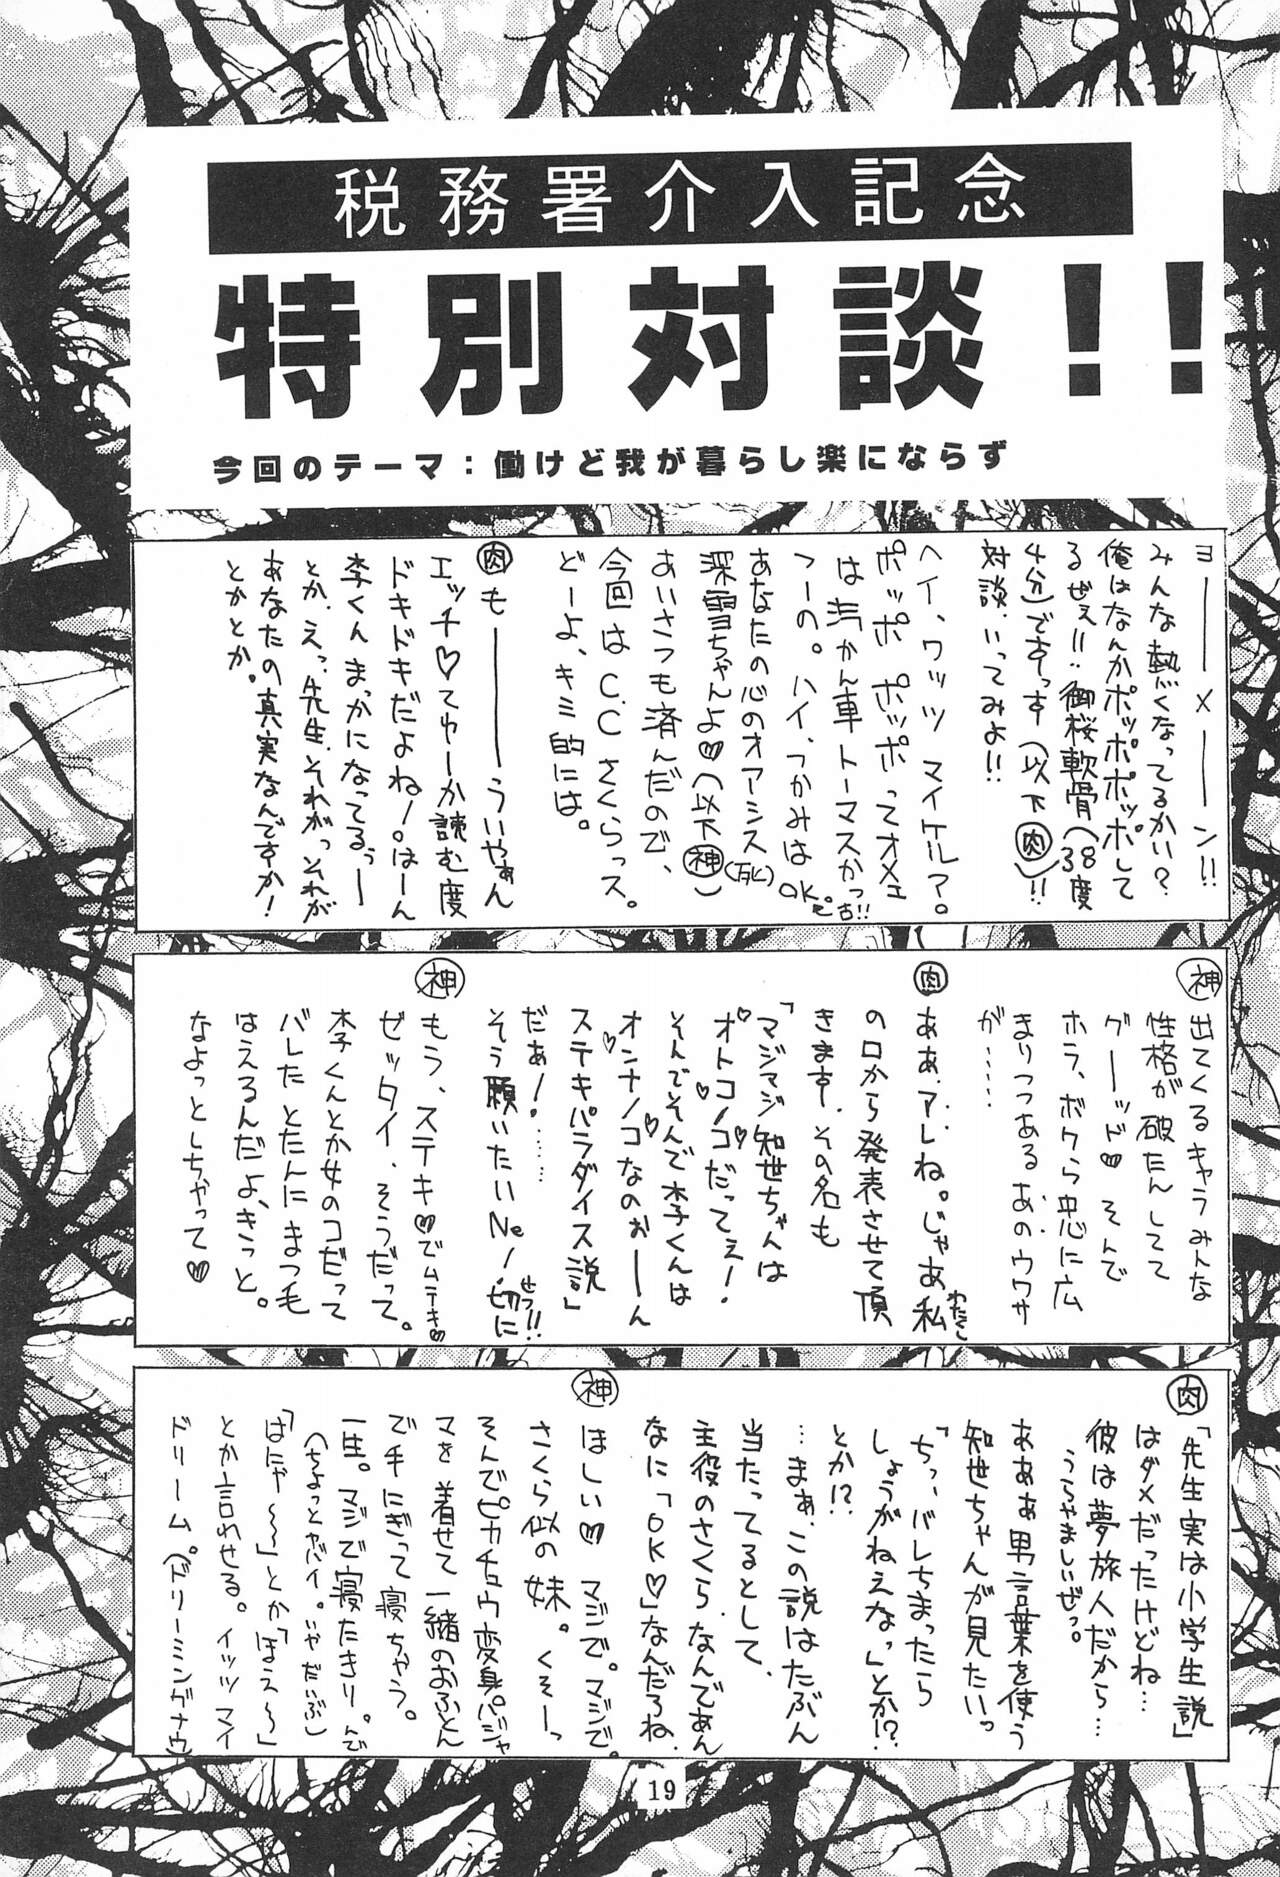 税務署介入記念
特別対談!!
今回のテーマ:働けど我が暮らし楽にならず
ヨーーメーーン!!
みんな熱くなってるかい?
俺はなんかポッポポッポして
るぜぇ!!御桜軟骨(38度
4分)ですっす(以下㊥肉)!!
対談、いってみよ!!
ヘイ、ワッツ マイケル?。
ポッポ ポッポってオメェ
は汽かん車トーマスかっ
つーの。ハイ、つかみはOK。
あなたの心のオアシス(死)
深雪ちゃんよ♡(以下神)
あいさつも済んだので、
今回はC.Cさくらっス。
どーよ、キミ的には。
肉 もーーーういやぁん
エッチ♡てゆーか読む度
ドキドキだよね!。はーん
李くんまっかになってるぅー
とか、えっ、先生、それがっそれが
あなたの真実なんですか!
とかとか。
神 出てくるキャラみんな
性格が破たんしてて
グーーッド♡そんで
ホラ、ボクら中心に広
まりつつあるあのウワサ
が……
肉 ああ、アレね。じゃあ私
わたくし
の口から発表させて頂
きます、その名も
「マジマジ知世ちゃんは
オトコノコだってぇ!
そんでそんで李くんは
オンナノコなのぉーーん
ステキパラダイス説」
だぁ!……
そう願いたいNe!切に
せつ!!
神 もう、ステキ♡でムテキ♡
ゼッタイ、そうだって。
李くんとか女のコだって
バレたとたんにまつ毛
はえるんだよ、きっと。
なよっとしちゃって♡
肉 「先生実は小学生説」
はダメだったけどね…
彼は夢旅人だから…
うらやましいぜっ。
あああ男言葉を使う
知世ちゃんが見たいっ
「ちっ、バレちまったら
しょうがねえなっ」とか!?
とか!?
…まぁ、この説はたぶん
当たってるとして、
主役のさくらなんであん
なに「OK♡」なんだろね
神 ほしい♡マジで。マジで。
さくら似の妹。くそーっ
そんでピカチュウ変身パジャ
マを着せて一緒のおふとん
で手にぎって寝ちゃう。
一生。マジで寝たきり。んで
(ちょっとヤバイ。いやだいぶ)
「はにゃ〜〜」とか「ほえ〜〜」
とか言わせる。イッツマイ
ドリーム。(ドリーミングナウ)
19